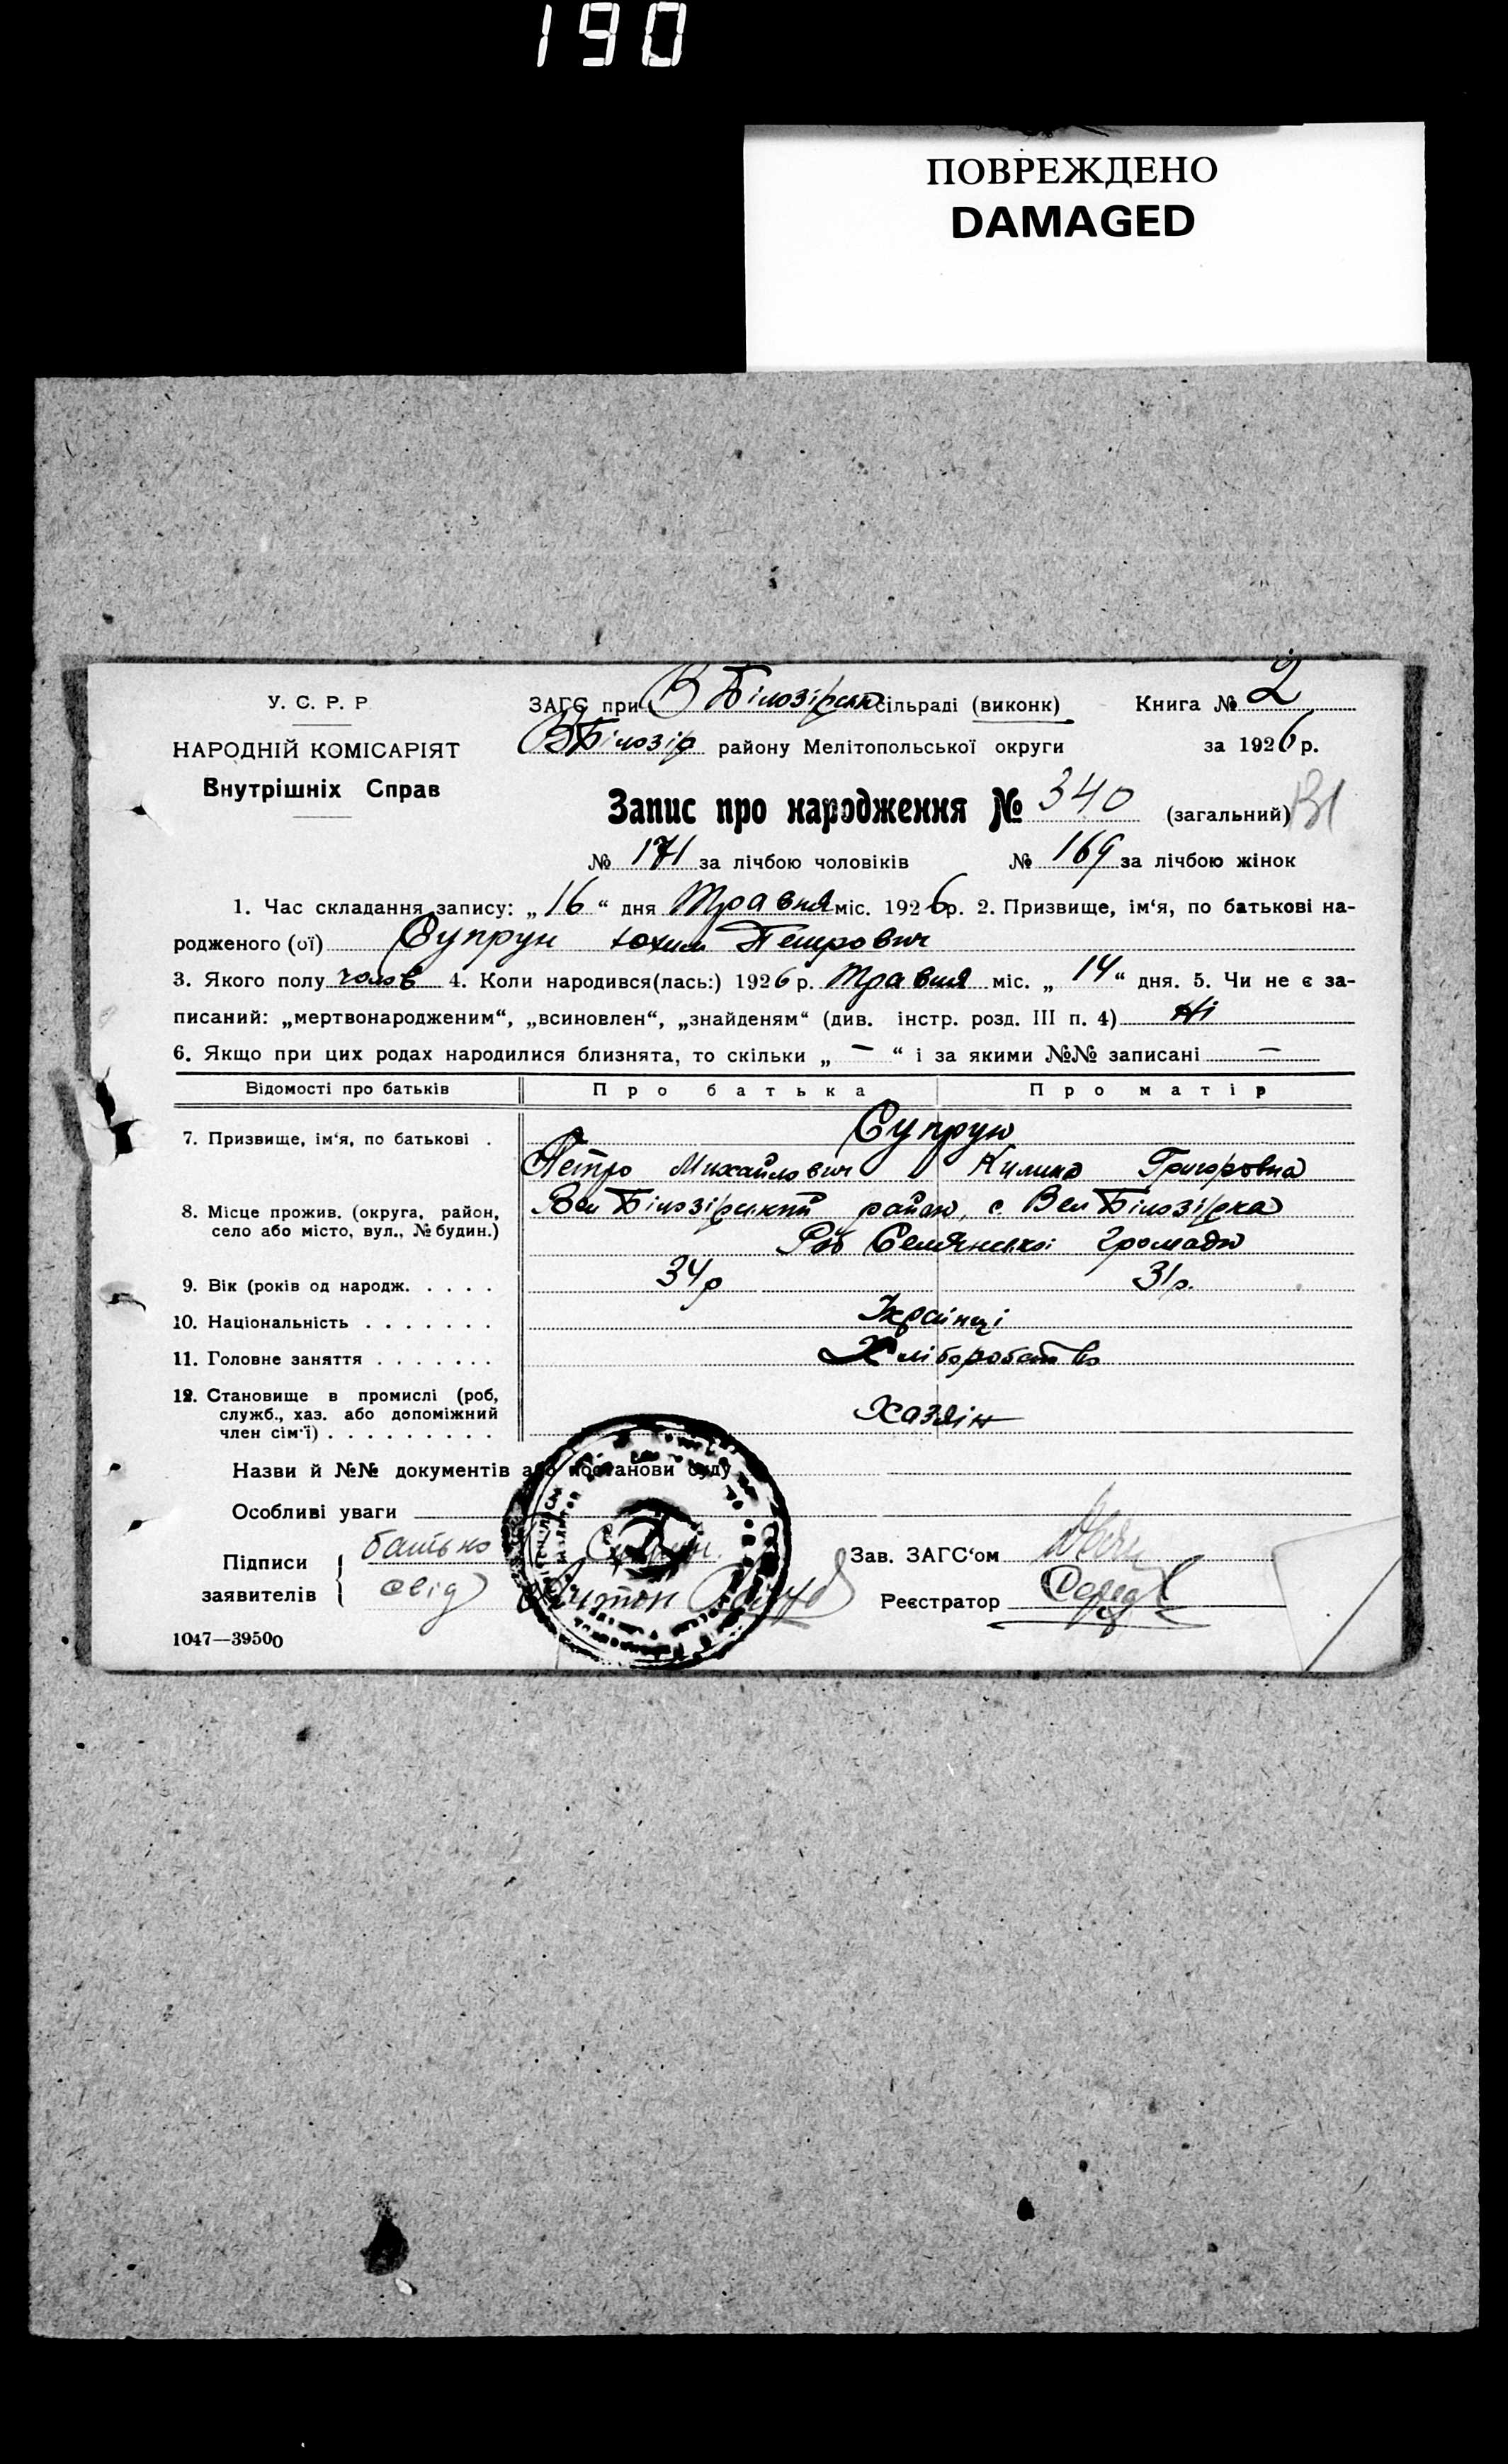 190
ПОВРЕЖДЕНО
DAMAGED
У. С. Р. Р.
НАРОДНІЙ КОМІСАРІЯТ
Внутрішніх Справ
ЗАГС при В Білозірськ сільраді (виконк)
В Білозір району Мелітопольської округи
Книга № 2
за 1926 р.
Запис про народження № 340 (загальний) 131
№ 171 за лічбою чоловіків № 169 за лічбою жінок
1. Час складання запису: „16“ дня Травня міс. 1926 р. 2. Призвище, ім‘я, по батькові на-
родженого (ої) Супрун Юхим Петрович
3. Якого полу чолов 4. Коли народився(лась:) 1926 р. Травня міс. „14“ дня. 5. Чи не є за-
писаний: „мертвонародженим“, „всиновлен“, „знайденям“ (див. інстр. розд. III п. 4) Ні
6. Якщо при цих родах народилися близнята, то скільки „ — “ і за якими №№ записані —
Відомості про батьків Про батька Про матір
7. Призвище, ім‘я, по батькові . Супрун
Петро Михайлович Килина Григоровна
8. Місце прожив. (округа, район,
село або місто, вул., № будин.)
Вел Білозірський район, с. Вел Білозірка
Роб Селянської громади
9. Вік (років од народж. . . . . 34 р 31 р.
10. Національність . . . . . . . Українці
11. Головне заняття . . . . . . . Хліборобство
12. Становище в промислі (роб,
служб., хаз. або допоміжний
член сім‘ї) . . . . . . . . . Хазяін
Назви й №№ документів або постанови суду
Особливі уваги
Підписи
заявителів
батько Супрун
свід Антон
Зав. ЗАГС‘ом
Реєстратор
1047—39500